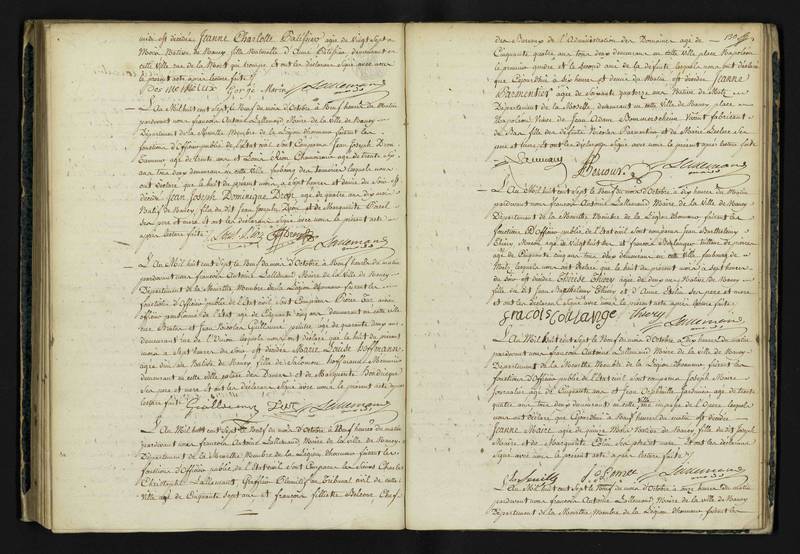 midi est décédée Jeanne Charlotte Palissier agée de vingt sept
Mois Native de Nancy fille Naturelle d'Anne Palissier demeurant en
cette ville rue de la
le présent acte après lecture faite
George Marin Lallemand
L'An Mil huit cent Sept le Neuf du mois d'Octobre à Neuf heures du matin
pardevant nous françois Antoine Lallemand Maire de la ville de Nancy
Département de la Meurthe Membre de la Légion d'honneur faisant les
fonctions d'officier public de l'Etat civil sont Comparus Jean Joseph Dron
agé de trente ans et
ans tous deux demeurant en cette ville faubourg des lesquels nous
ont déclaré que le huit du présent mois, à sept heures et demie du Soir est
décédé Jean Joseph Dominique Dron agé de quatre ans dix mois
Natif de Nancy, fils de dit Jean Joseph Dron et de Marguerite
ses père et mère, et ont les déclarans Signé avec nous le présent acte
après lecture faite
Lallemand
L'An Mil huit cent Sept le Neuf du mois d'Octobre à Neuf heures du matin
pardevant nous françois Antoine Lallemand Maire de la ville de Nancy
Département de la Meurthe Membre de la Légion d'honneur faisant les
fonctions d'officier public de l'Etat civil sont Comparus Pierre
officier pensionné de l'Etat agé de Cinquante cinq ans demeurant en cette ville
rue et Jean Nicolas Guillaume peintre agé de quarante deux ans
demeurant rue de l'Union lesquels nous ont déclaré que le huit du présent
mois à sept heures du soir est décédée Marie Louise Hoffmann
agée d'un an Native de Nancy fille de Salomon Hoffmann Menuisier
demeurant en cette ville et de Marguerite
ses père et mere et ont les déclarans Signé avec nous le présent acte après
lecture faite
Guillaume Lallemand
L'An Mil huit cent Sept le Neuf du mois d'Octobre à Neuf heures du matin
pardevant nous françois Antoine Lallemand, Maire de la ville de Nancy
Département de la Meurthe Membre de la Légion d'honneur faisant les
fonctions d'officier public de l'Etat civil sont Comparus les Sieurs Charles
Christophe Lallemant Greffier au Tribunal civil de cette
ville agé de Cinquante sept ans et françois Chef
des Bureaux de l'Administration des Domaines agé de
Cinquante quatre ans tous deux demeurans en cette ville place Napoleon
le premier gendre et le second ami de la défunte lesquels nous ont déclaré
que cejourd'hui à six heures et demie du Matin est décédée Jeanne
Parmentier agée de soixante quatorze ans Native de Metz
Département de la Moselle, demeurant en cette ville, place
Napoleon Veuve de Jean Adam vivant fabricant
de Bas fille des défunts Nicolas Parmentier et de Marie ses
père et mere, et ont les déclarans Signé avec nous le présent acte après lecture faite
Lallemand
L'An Mil huit cent Sept le Neuf du mois d'Octobre à dix heures du Matin
pardevant nous françois Antoine Lallemand Maire de la Ville de Nancy
Département de la Meurthe Membre de la Légion d'honneur faisant les
fonctions d'Officier public de l'Etat civil sont comparus Jean Barthelemy
Thiery agé de vingt huit ans et françois
agé de Cinquante cinq ans tous deux demeurans en cette Ville, faubourg de
Metz, lesquels nous ont déclaré que le huit du présent mois à sept heures
du soir est décédée Thérèse Thiery agée de deux ans Native de Nancy
fille du dit Jean Barthelemy Thiery et d'Anne ses père et mere
et ont les déclarans Signé avec nous le présent acte après lecture faite
fracois Thiery Lallemand
L'An Mil huit cent Sept le Neuf du mois d'Octobre à dix heures du matin
pardevant nous françois Antoine Lallemand Maire de la Ville de Nancy
Département de la Meurthe Membre de la Légion d'honneur faisant les
fonctions d'officier public de l'Etat civil sont comparus Joseph Maire
Journalier agé de Cinquante ans et Jean Jardinier agé de trente
quatre ans tous deux demeurans en cette Ville lesquels
nous ont déclaré que Cejourd'hui à Neuf heures du matin est décédée
Jeanne Maire agée de quinze Mois Native de Nancy, fille du dit Joseph
Maire et de Marguerite Colin ses père et mere. Et ont les déclarans
Signé avec nous le présent acte après lecture faite
Lallemand
L'An Mil huit cent Sept le Neuf du mois d'Octobre à onze heures du matin
pardevant nous françois Antoine Lallemand Maire de la ville de Nancy
Département de la Meurthe Membre de la Légion d'honneur faisant les